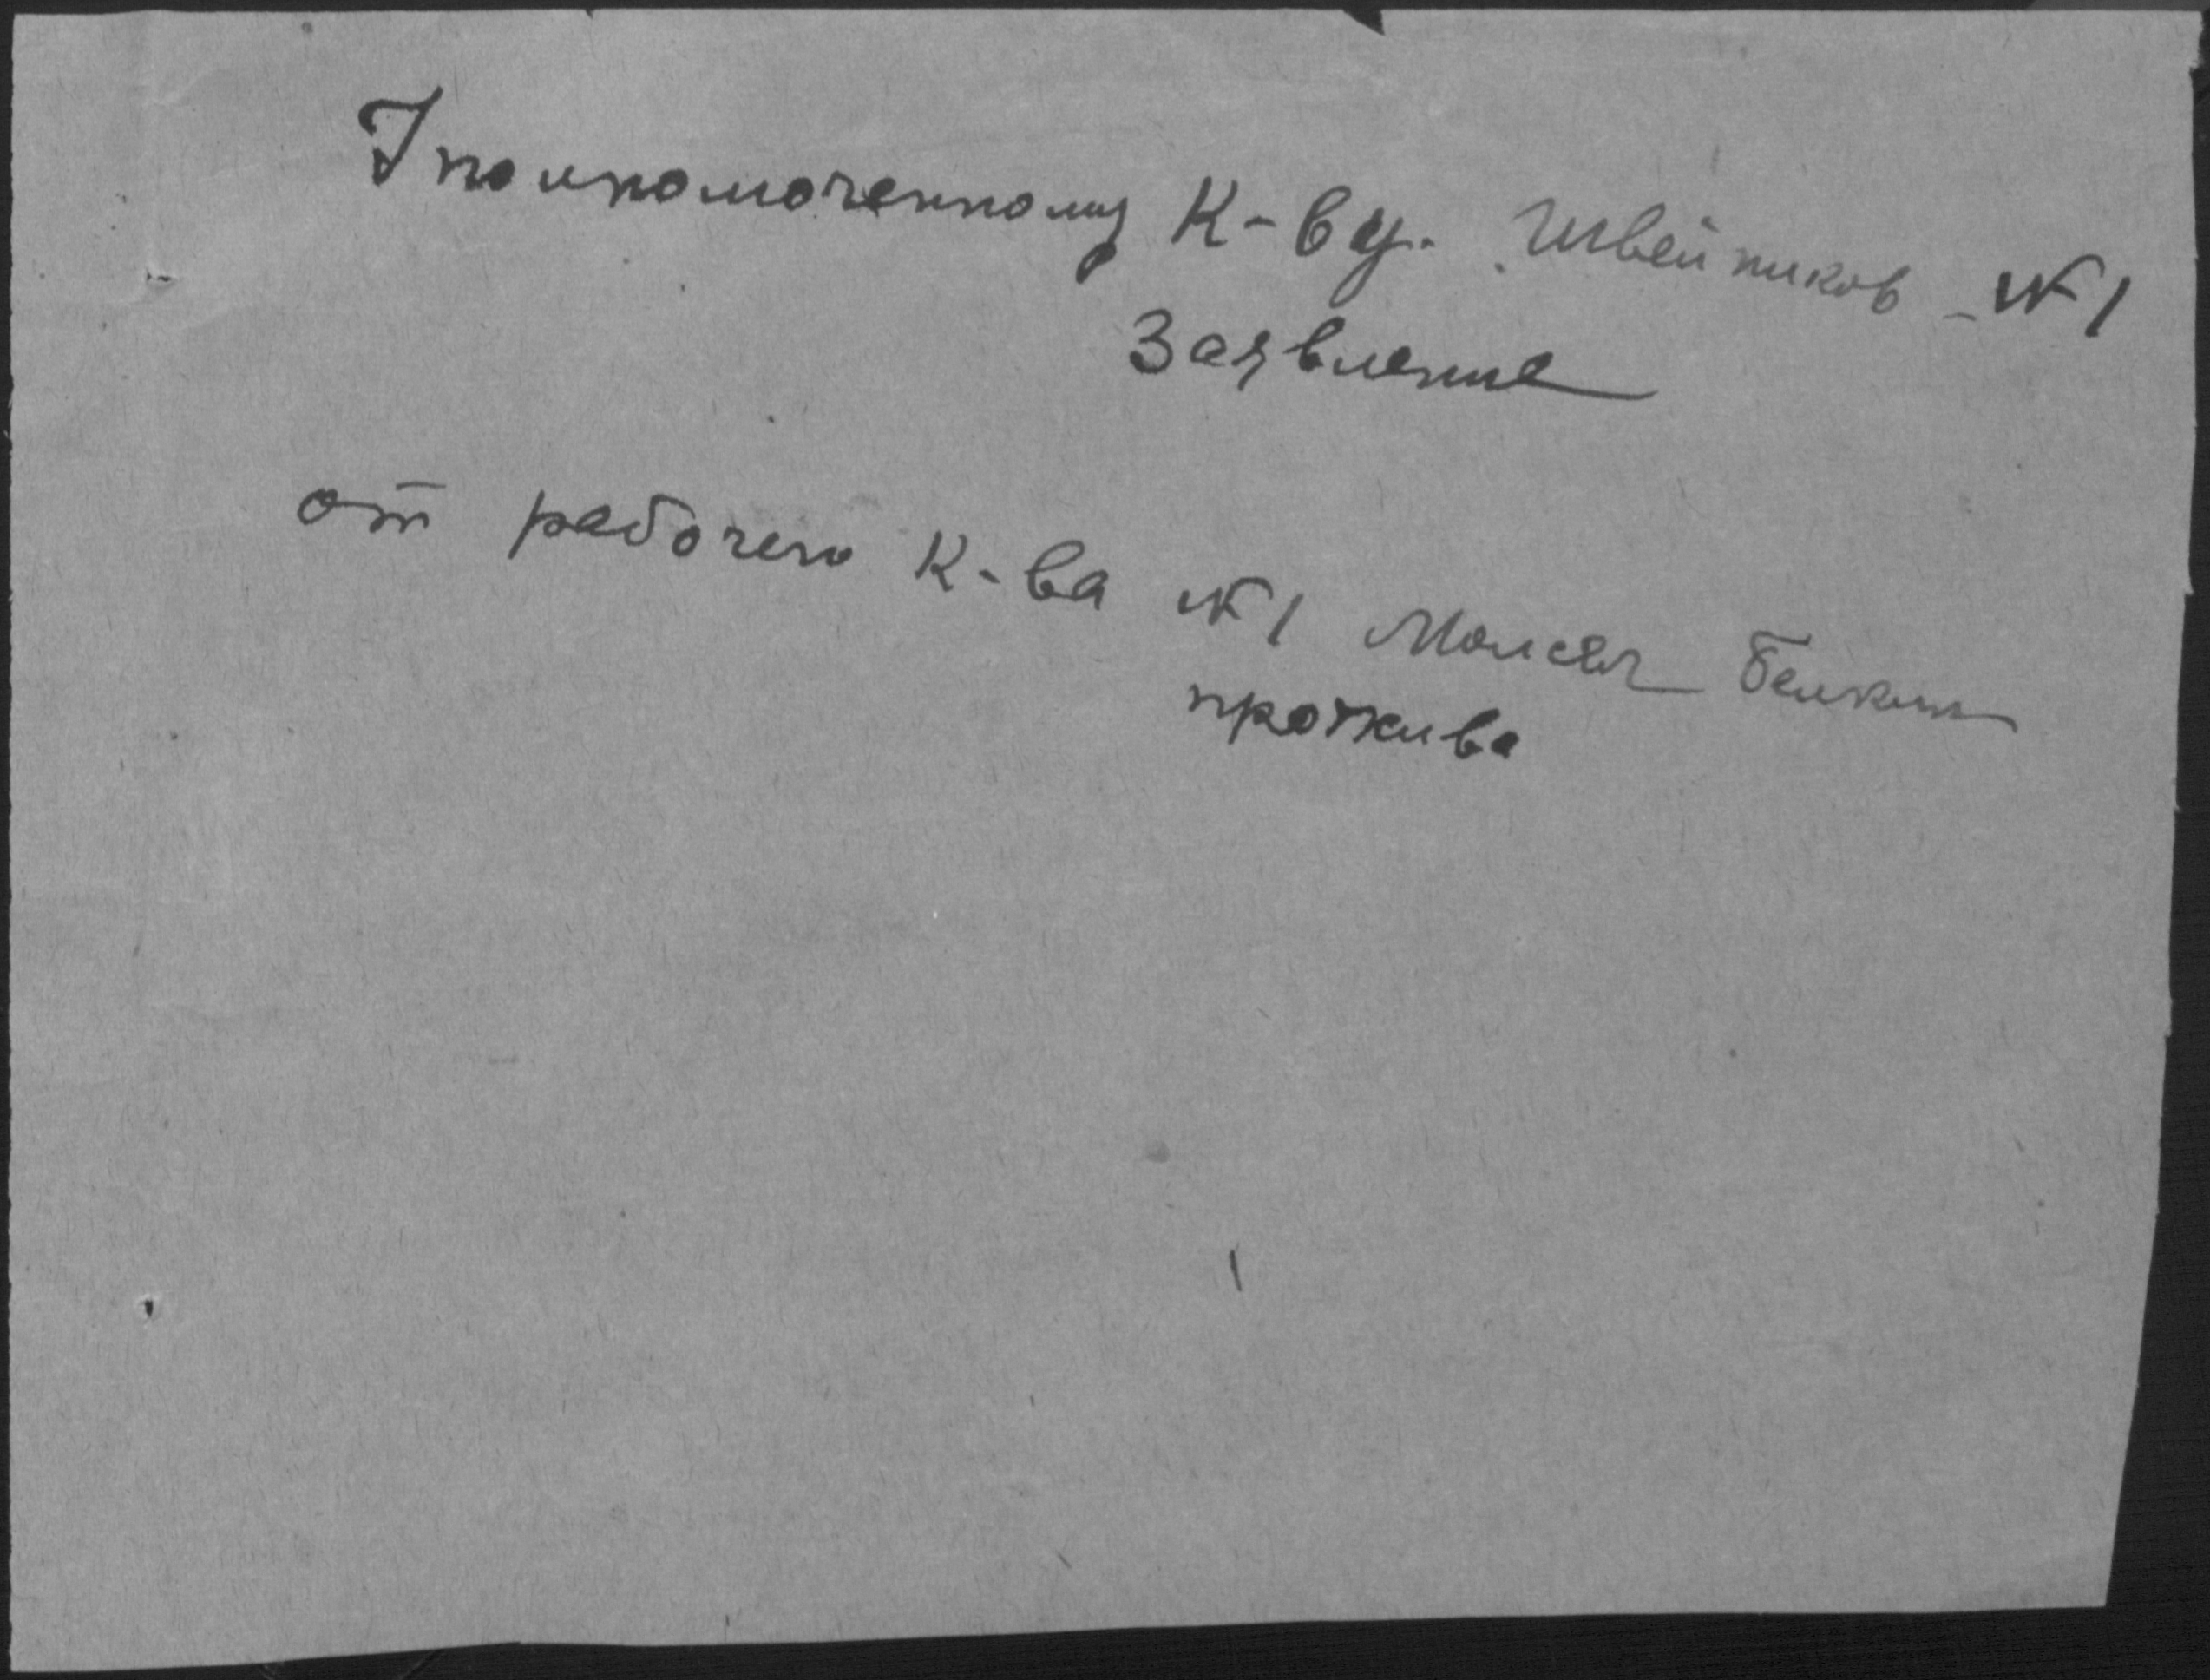 Уполномоченному К-ву. Швейников №1
Заявление
от рабочего К-ва №1 Моисея Белкин
прожива